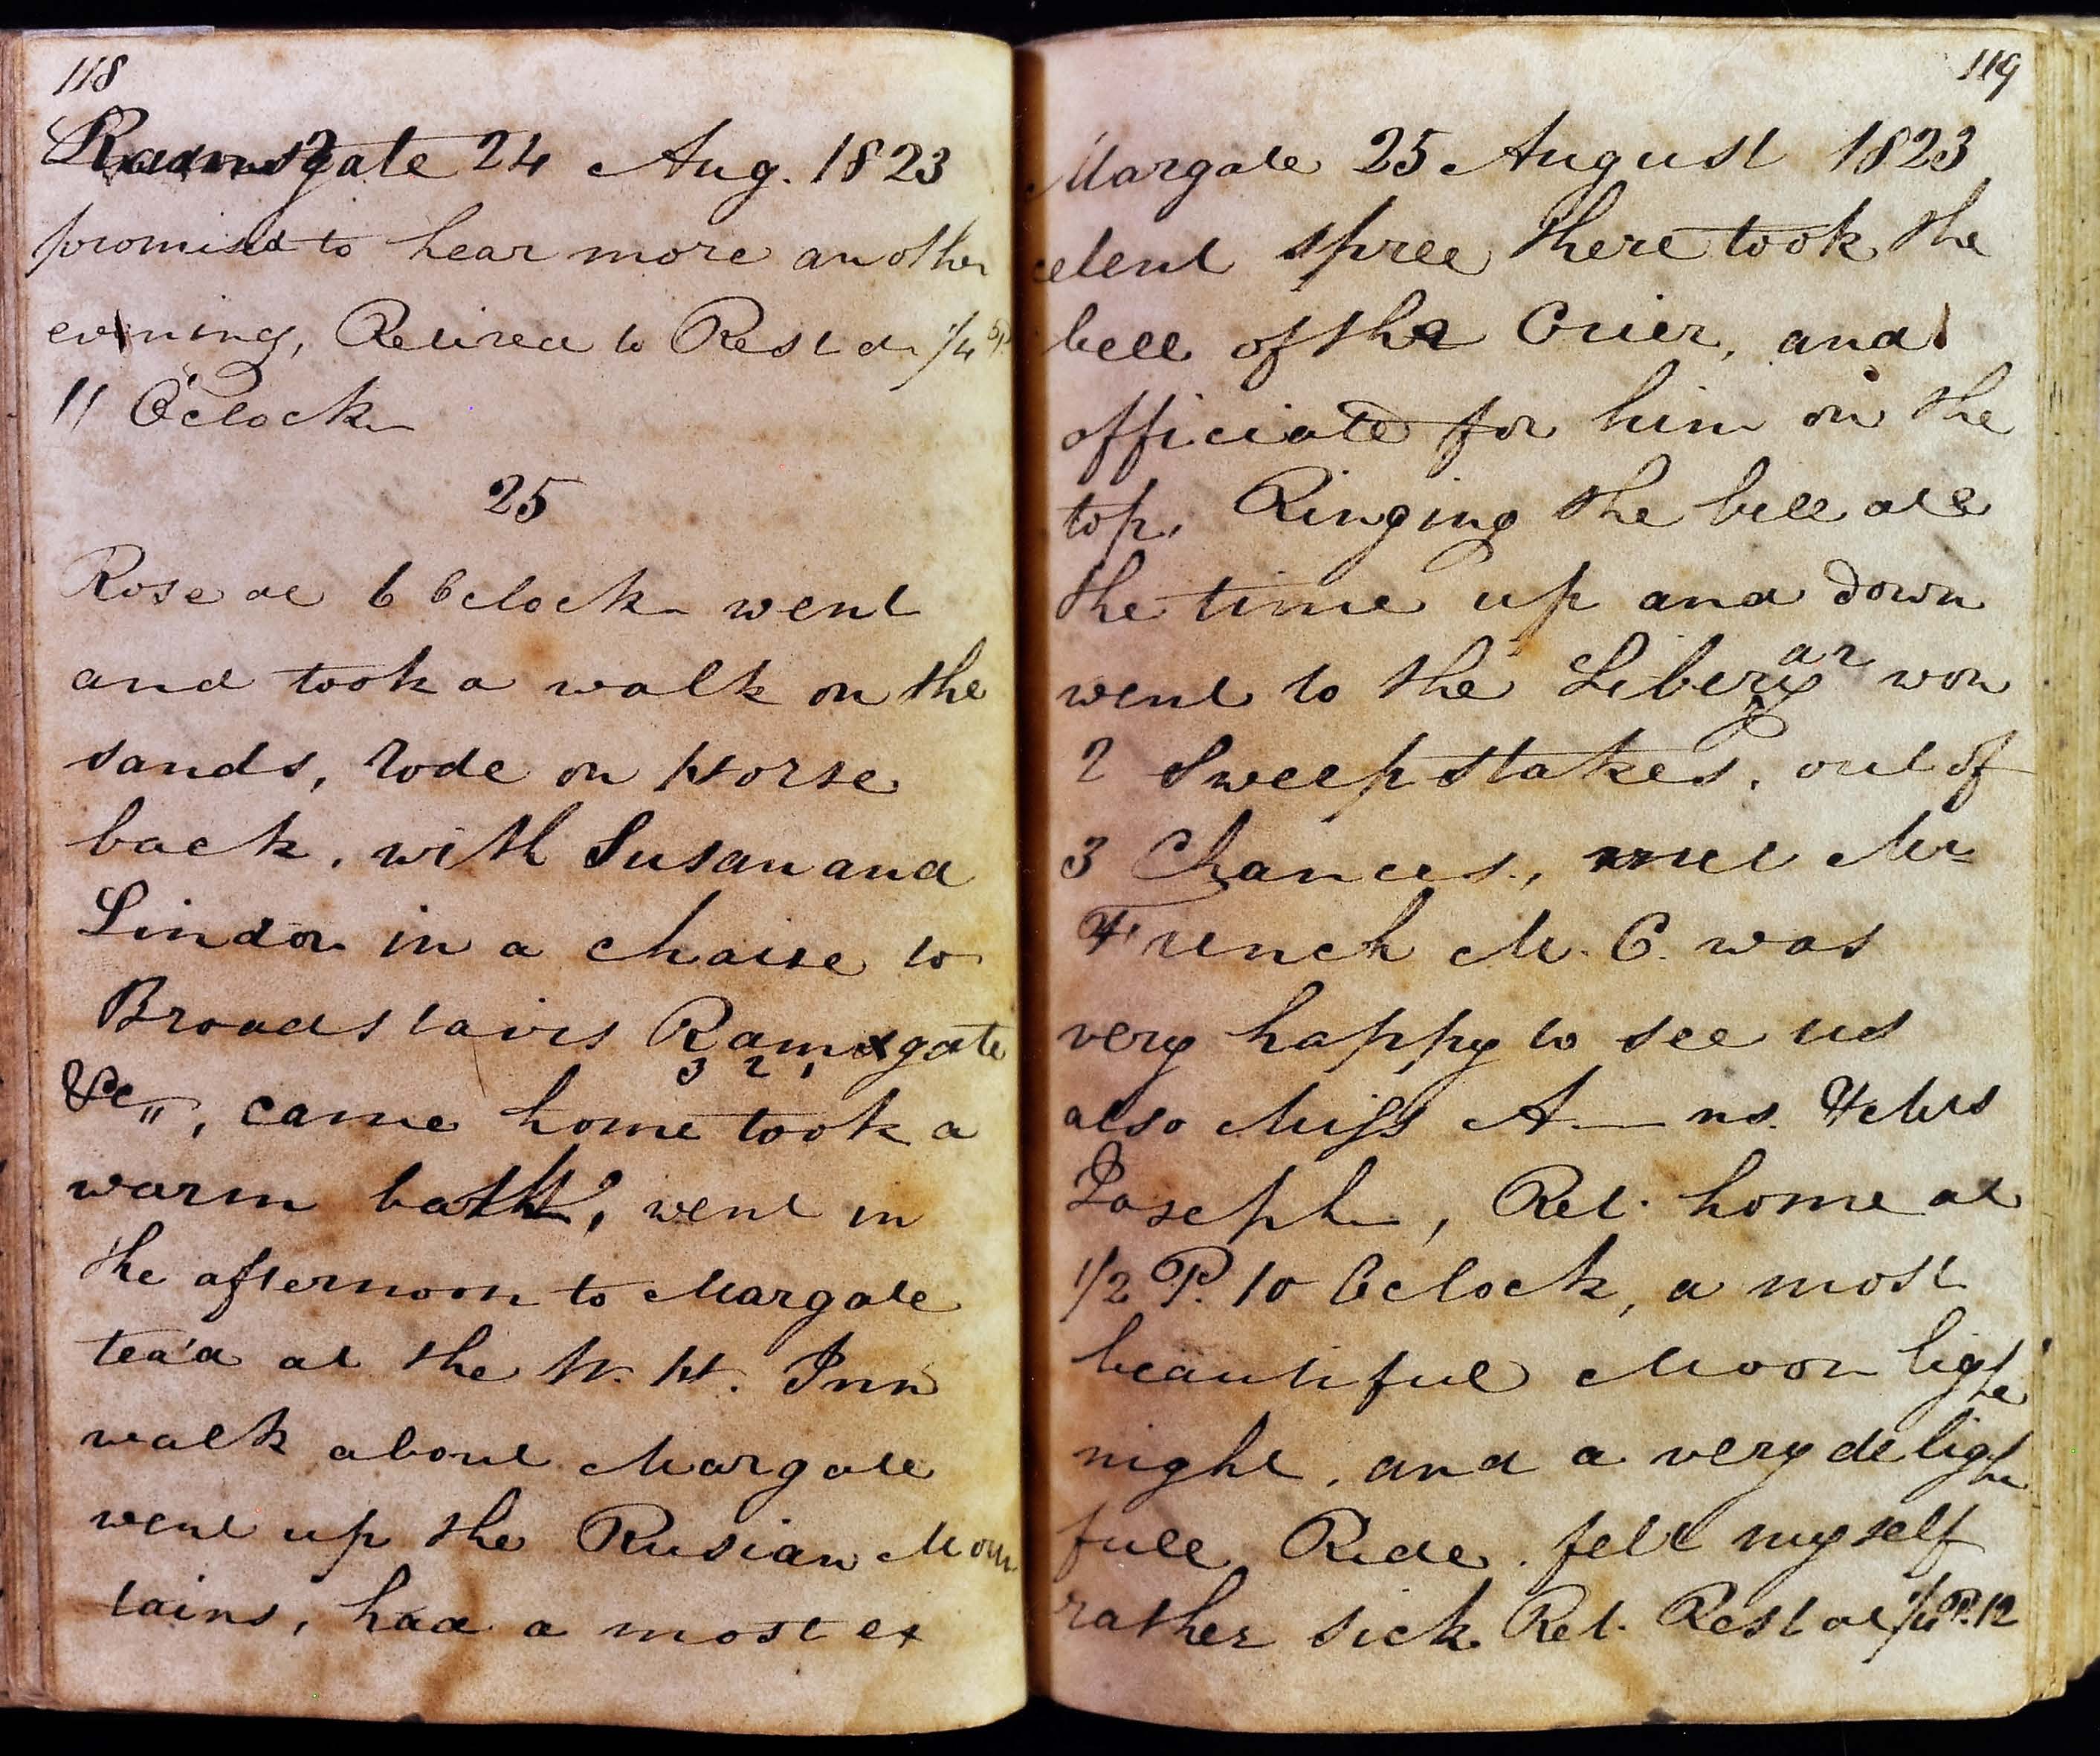 118
Ramsgate 24 Aug. 1823
promised to hear more another
evening, Retired to Rest at 1/4 P.
11 O'Clock
25
Rose at 6 Oclock went
and took a walk on the
sands, rode on Horse
back, with Susan and
Lindon in a chaise to
Broadstairs Ramsgate
3 2 1
&c,,, came home took a
warm bath, went in
the afternoon to Margate
tea'd at the W. H. Inn
walk about Margate
went up the Rusian Moun
tains, had a most ex
119
Margate 25 August 1823
celent spree there took the
bell of the Crier, and
officiated for him on the
top. Ringing the bell all
the time up and down
went to the Liberary won
2 Sweepstakes, out of
3 Chances, met Mr
French M. C. was
very happy to see us
also Miss A—ns. & Mrs
Joseph, Ret. home at
1/2 P. 10 Oclock, a most
beautiful Moon light
night, and a very delight
full Ride. felt myself
rather sick Ret. Rest at 1/4 P. 12